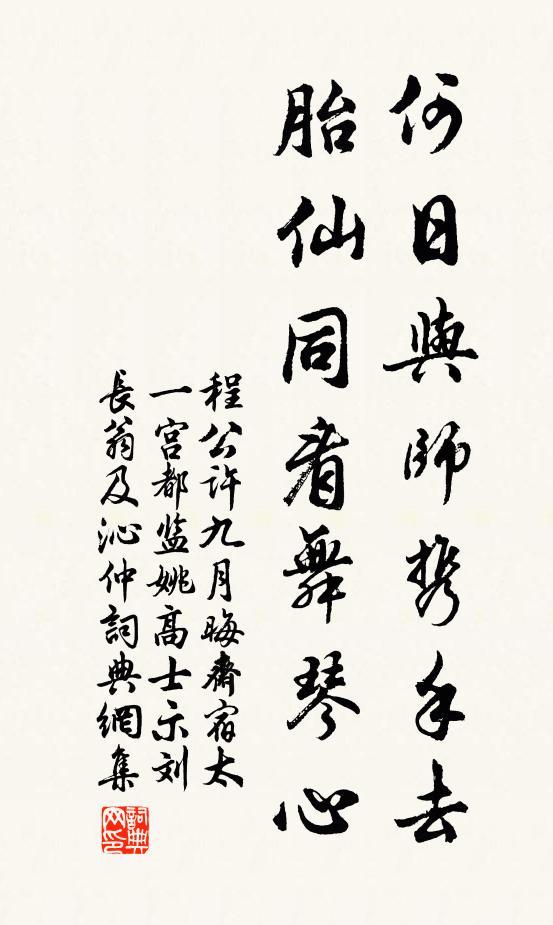 何日與師携手去
胎仙同看舞琴心
程公许九月晦齋宿太
一宫都监姚高士示刘
長翁及沁仲詞典網集
詞典网印